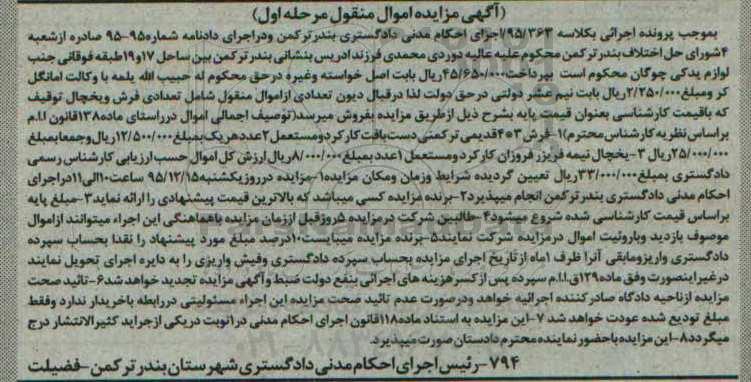 (آگهی مزایده اموال منقول مرحله اول)
بموجب پرونده اجرائی بکلاسه ۹۵/۳۶۳/اجرای احکام مدنی دادگستری بندرترکمن ودراجرای دادنامه شماره۹۵-۹۵ صادره ازشعبه
۴شورای حل اختلاف بندرترکمن محکوم علیه عالیه دوردی محمدی فرزندادریس بنشانی بندرترکمن بین ساحل ۱۷و۱۹طبقه فوقانی جنب
لوازم یدکی چوگان محکوم است بپرداخت۴۵/۶۵۰/۰۰۰ریال بابت اصل خواسته وغیره درحق محکوم له حبیب الله یلمه با وکالت امانگل
کر ومبلغ۲/۲۵۰/۰۰۰ریال بابت نیم عشر دولتی درحق دولت لذا درقبال دیون تعدادی ازاموال منقول شامل تعدادی فرش ویخچال توقیف
که باقیمت کارشناسی بعنوان قیمت پایه بشرح ذیل ازطریق مزایده بفروش میرسد(توصیف اجمالی اموال درراستای ماده۱۳۸قانون ا.ا.م
براساس نظریه کارشناس محترم)۱-فرش ۳*۴قدیمی ترکمنی دست بافت کارکردومستعمل۲عددهریک بمبلغ۱۲/۵۰۰/۰۰۰ریال وجمعابمبلغ
۲۵/۰۰۰/۰۰۰ریال ۳-یخچال نیمه فریزر فروزان کارکردومستعمل۱عددبمبلغ۸/۰۰۰/۰۰۰ریال ارزش کل اموال حسب ارزیابی کارشناس رسمی
دادگستری بمبلغ۳۳/۰۰۰/۰۰۰ریال تعیین گردیده شرایط وزمان ومکان مزایده۱-مزایده درروزیکشنبه۹۵/۱۲/۱۵ ساعت۱۰الی۱۱دراجرای
احکام مدنی دادگستری بندرترکمن انجام میپذیرد۲-برنده مزایده کسی میباشد که بالاترین قیمت پیشنهادی را ارائه نماید۳-مبلغ پایه
براساس قیمت کارشناسی شده شروع میشود۴-طالبین شرکت درمزایده ۵روزقبل اززمان مزایده باهماهنگی این اجراء میتوانند ازاموال
موصوف بازدید وباروئیت اموال درمزایده شرکت نمایند۵-برنده مزایده میبایست۱۰درصد مبلغ مورد پیشنهاد را نقدا بحساب سپرده
دادگستری واریزومابقی آنرا ظرف ۱ماه ازتاریخ اجرای مزایده بحساب سپرده دادگستری وفیش واریزی را به دایره اجرای تحویل نمایند
درغیراینصورت وفق ماده۱۲۹ق.ا.ا.م سپرده پس ازکسرهزینه های اجرائی بنفع دولت ضبط وآگهی مزایده تجدید خواهدشد۶-تائید صحت
مزایده ازناحیه دادگاه صادرکننده اجرائیه خواهد ودرصورت عدم تائید صحت مزایده این اجراء مسئولیتی دررابطه باخریدار ندارد وفقط
مبلغ تودیع شده عودت خواهدشد ۷-این مزایده به استناد ماده۱۱۸قانون اجرای احکام مدنی در۱نوبت دریکی ازجراید کثیرالانتشار درج
میگردد۸-این مزایده باحضورنماینده محترم دادستان صورت میپذیرد.
۷۹۴-رئیس اجرای احکام مدنی دادگستری شهرستان بندرترکمن-فضیلت